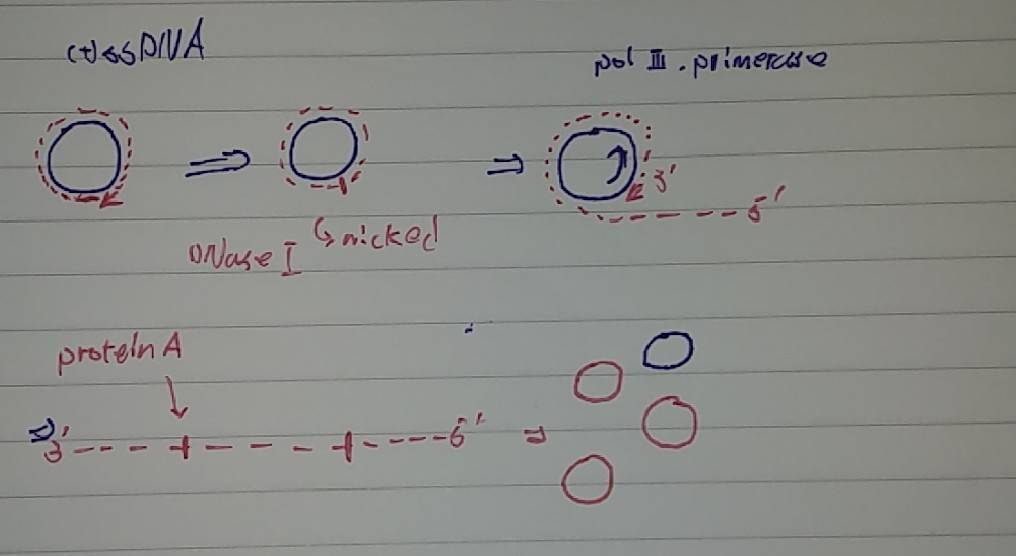 (+)ssDNA
pol III . primerase
3'
5'
DNase I ↳ nicked
protein A
3' 5'